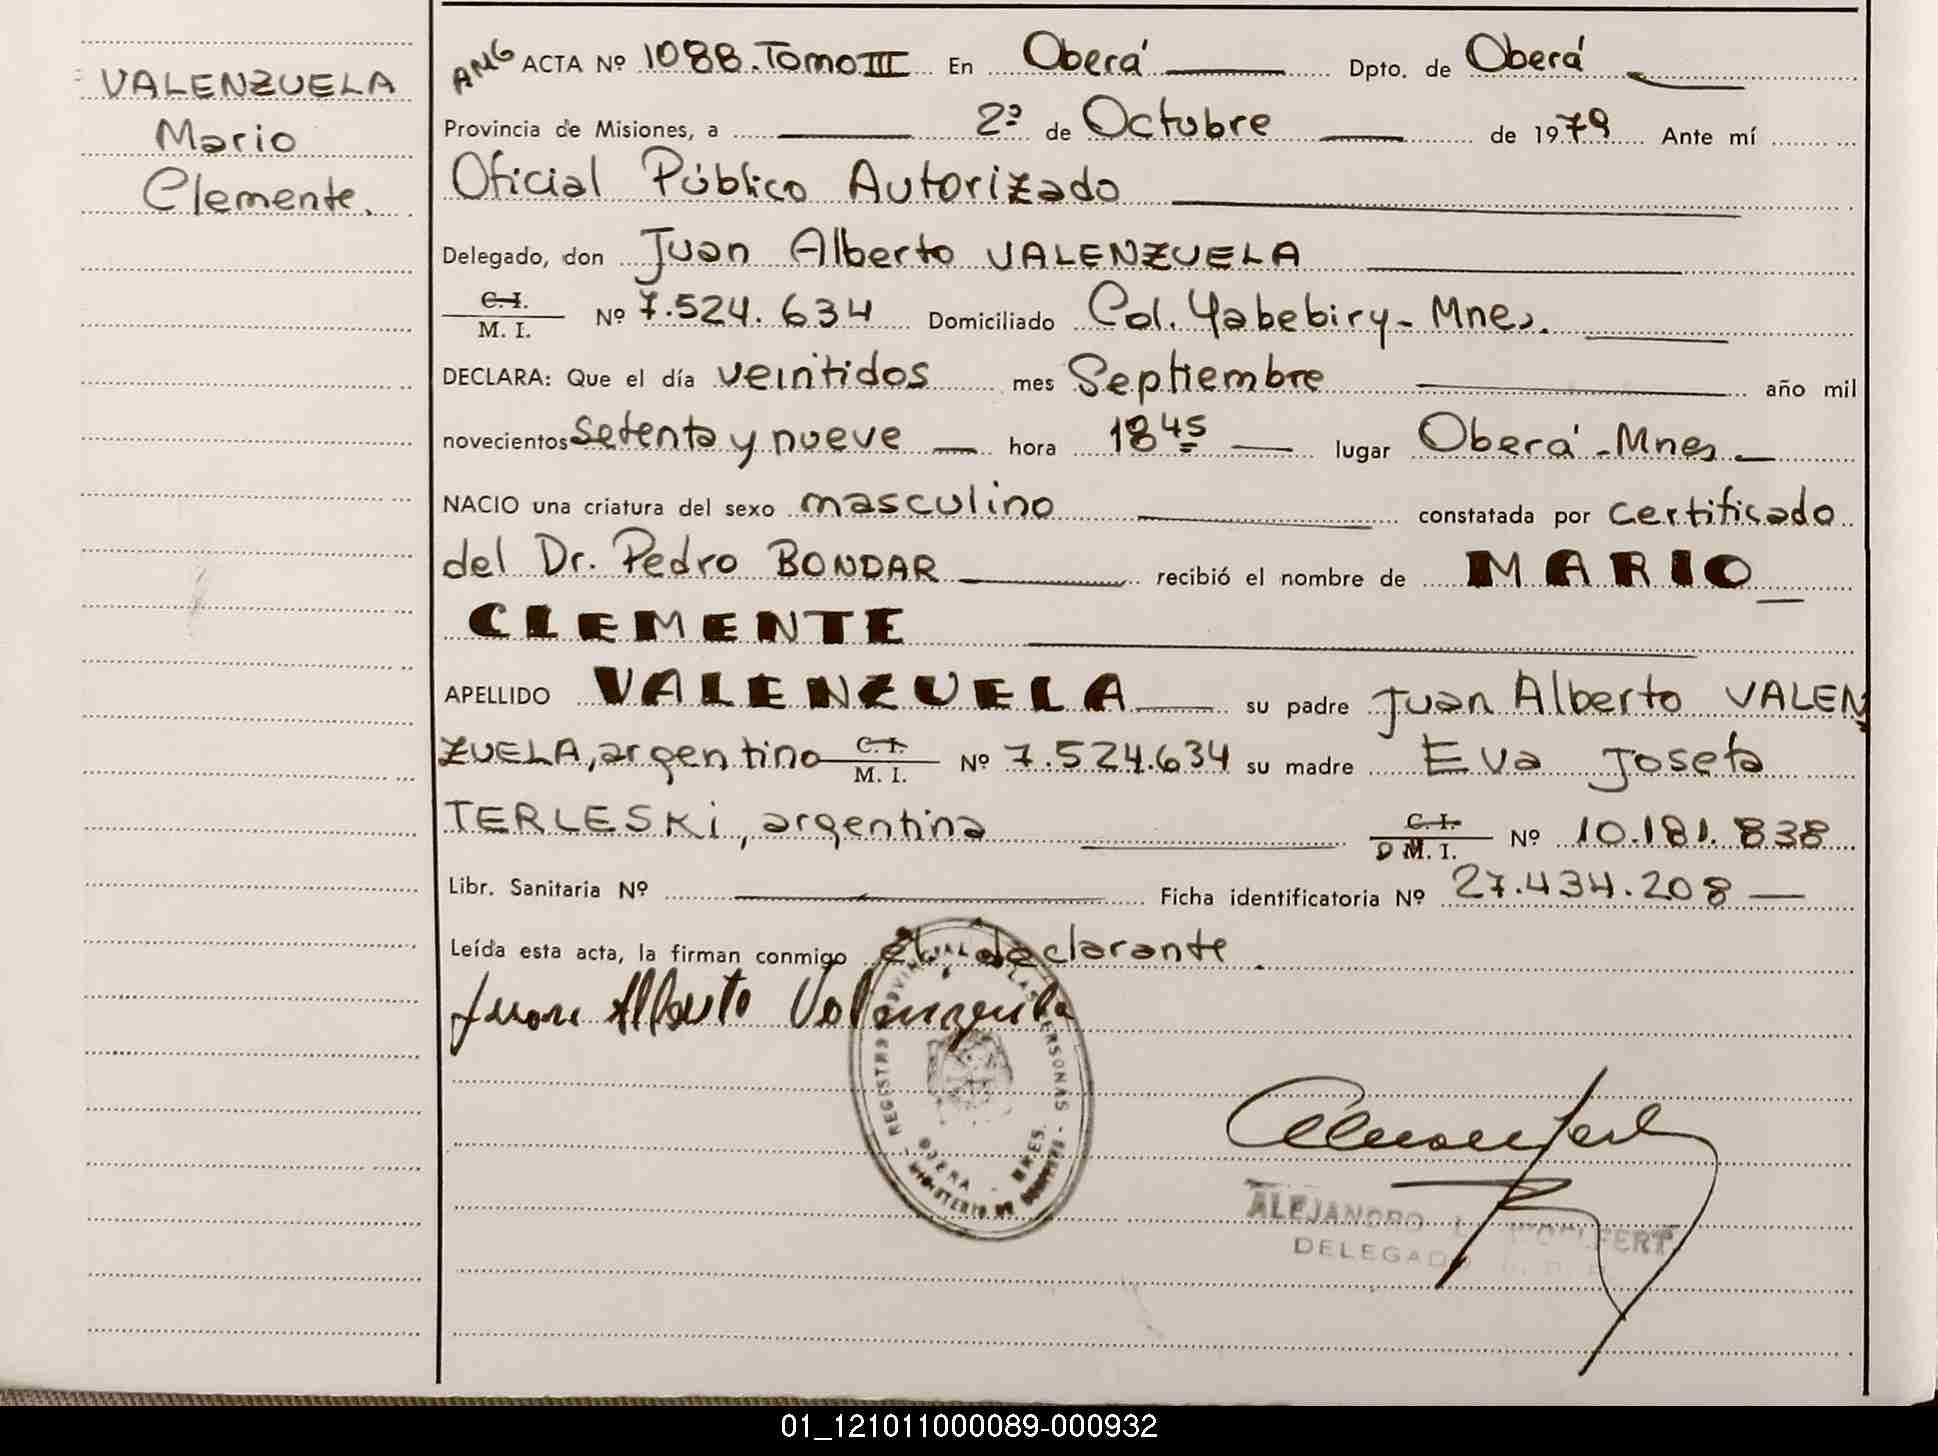 VALENZUELA
Mario
Clemente.
ANG ACTA Nº 1088. Tomo III En Oberá Dpto. de Oberá
Provincia de Misiones, a 2º de Octubre de 1979 Ante mí
Oficial Público Autorizado
Delegado, don Juan Alberto VALENZUELA
C.I. / M. I. Nº 7.524.634 Domiciliado Col. Yabebiry - Mnes.
DECLARA: Que el día veintidos mes Septiembre año mil
novecientos setenta y nueve hora 18 45 lugar Oberá - Mnes
NACIO una criatura del sexo masculino constatada por certificado
del Dr. Pedro BONDAR recibió el nombre de MARIO
CLEMENTE
APELLIDO VALENZUELA su padre Juan Alberto VALEN
ZUELA, argentino C. I. / M. I. Nº 7.524.634 su madre Eva Josefa
TERLESKI, argentina C. I. / D M. I. Nº 10.181.838
Libr. Sanitaria Nº Ficha identificatoria Nº 27.434.208
Leída esta acta, la firman conmigo el declarante.
Juan Alberto Valenzuela
REGISTRO PROVINCIAL DE LAS PERSONAS
OBERA - MNES.
MINISTERIO DE GOBIERNO
ALEJANDRO
DELEGADO
01_121011000089-000932